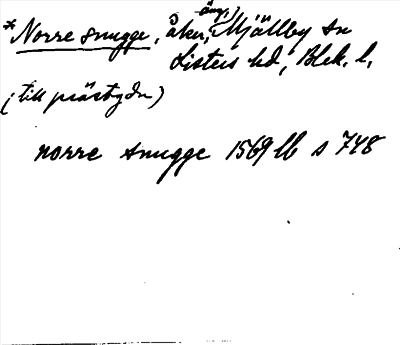 * Norre smugge, åker, äng, Mjällby sn
Listers hd, Blek. l,
(till prästbydn)
norre smugge 1569 lb s 748